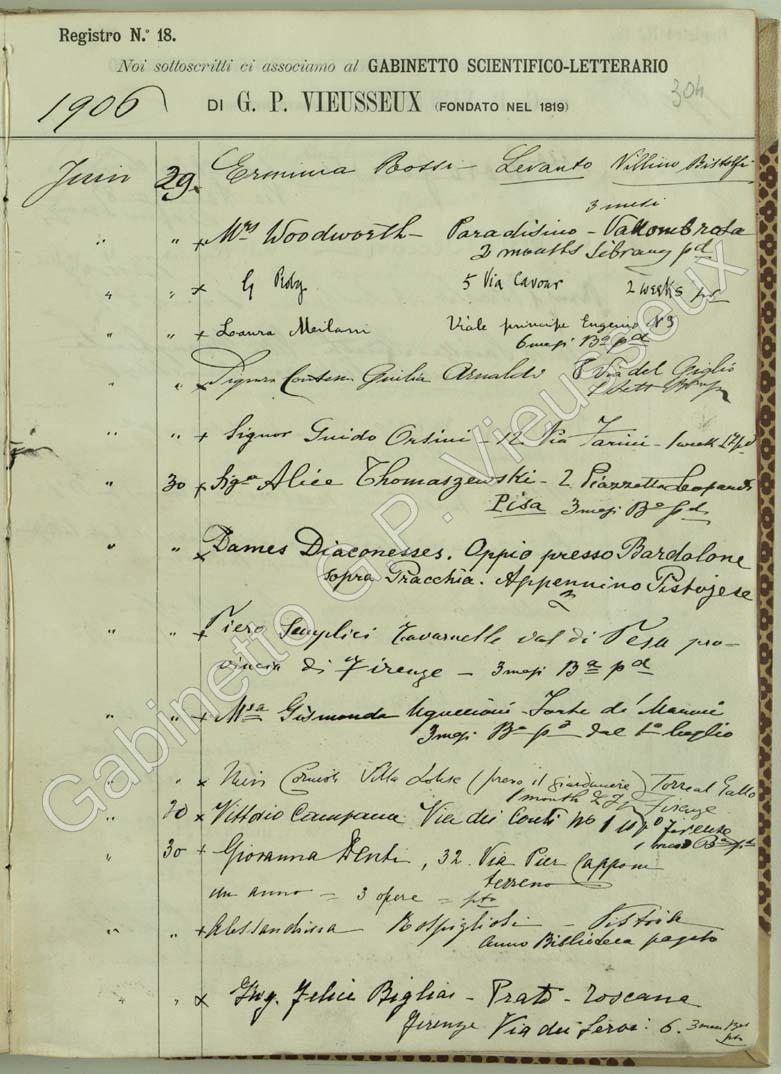 Registro N.º 18.
Noi sottoscritti ci associamo al GABINETTO SCIENTIFICO-LETTERARIO
304
1906
DI G. P. VIEUSSEUX (FONDATO NEL 1819)
Juin 29 Erminia Rossi - Levanto Villino Bistolfi
3 mesi
" " x Mrs Woodworth - Paradisino - Vallombrosa
2 months library pd
" " x G 5 Via Cavour 2 weeks pd
" " x Laura Meilani Viale principe Eugenio N 3
6 mesi Ba pd
" " x Signora Contessa Giulia Arnaldi 8 Via del Giglio
1
" " + Signor Guido Orsini - 12 Via Farini - 1 week
" 30 x Siga Alice Thomaszewski - 2 Piazzetta Leopardi
Pisa 3 mesi Ba pd
" " x Dames Diaconesses. Oppio presso Bardalone
sopra Pracchia. Appennino Pistojese
3
" " x Piero Semplici Tavarnelle val di Pesa pro-
vincia di Firenze - 3 mesi Ba pd
" " x Msa Gismonda Uguccioni - Forte de' Marmi
3 mesi Ba pd dal 1o luglio
" " x Villa (presso il giardiniere) Torre al Gallo
1 month Firenze
" 30 x Vittorio Campana Via dei Conti No 1 Firenze
1 mese Ba pd
" 30 + Giovanna Denti, 32 Via Pier Capponi
terreno
un anno = 3 opere = pto
" " + Alessandrina Rospigliosi - Pistoia
anno Biblioteca pagato
" " x Ing. Felice Bigliai - Prato - Toscana
Firenze Via dei Servi 6. 3 mesi
Gabinetto G.P. Vieusseux